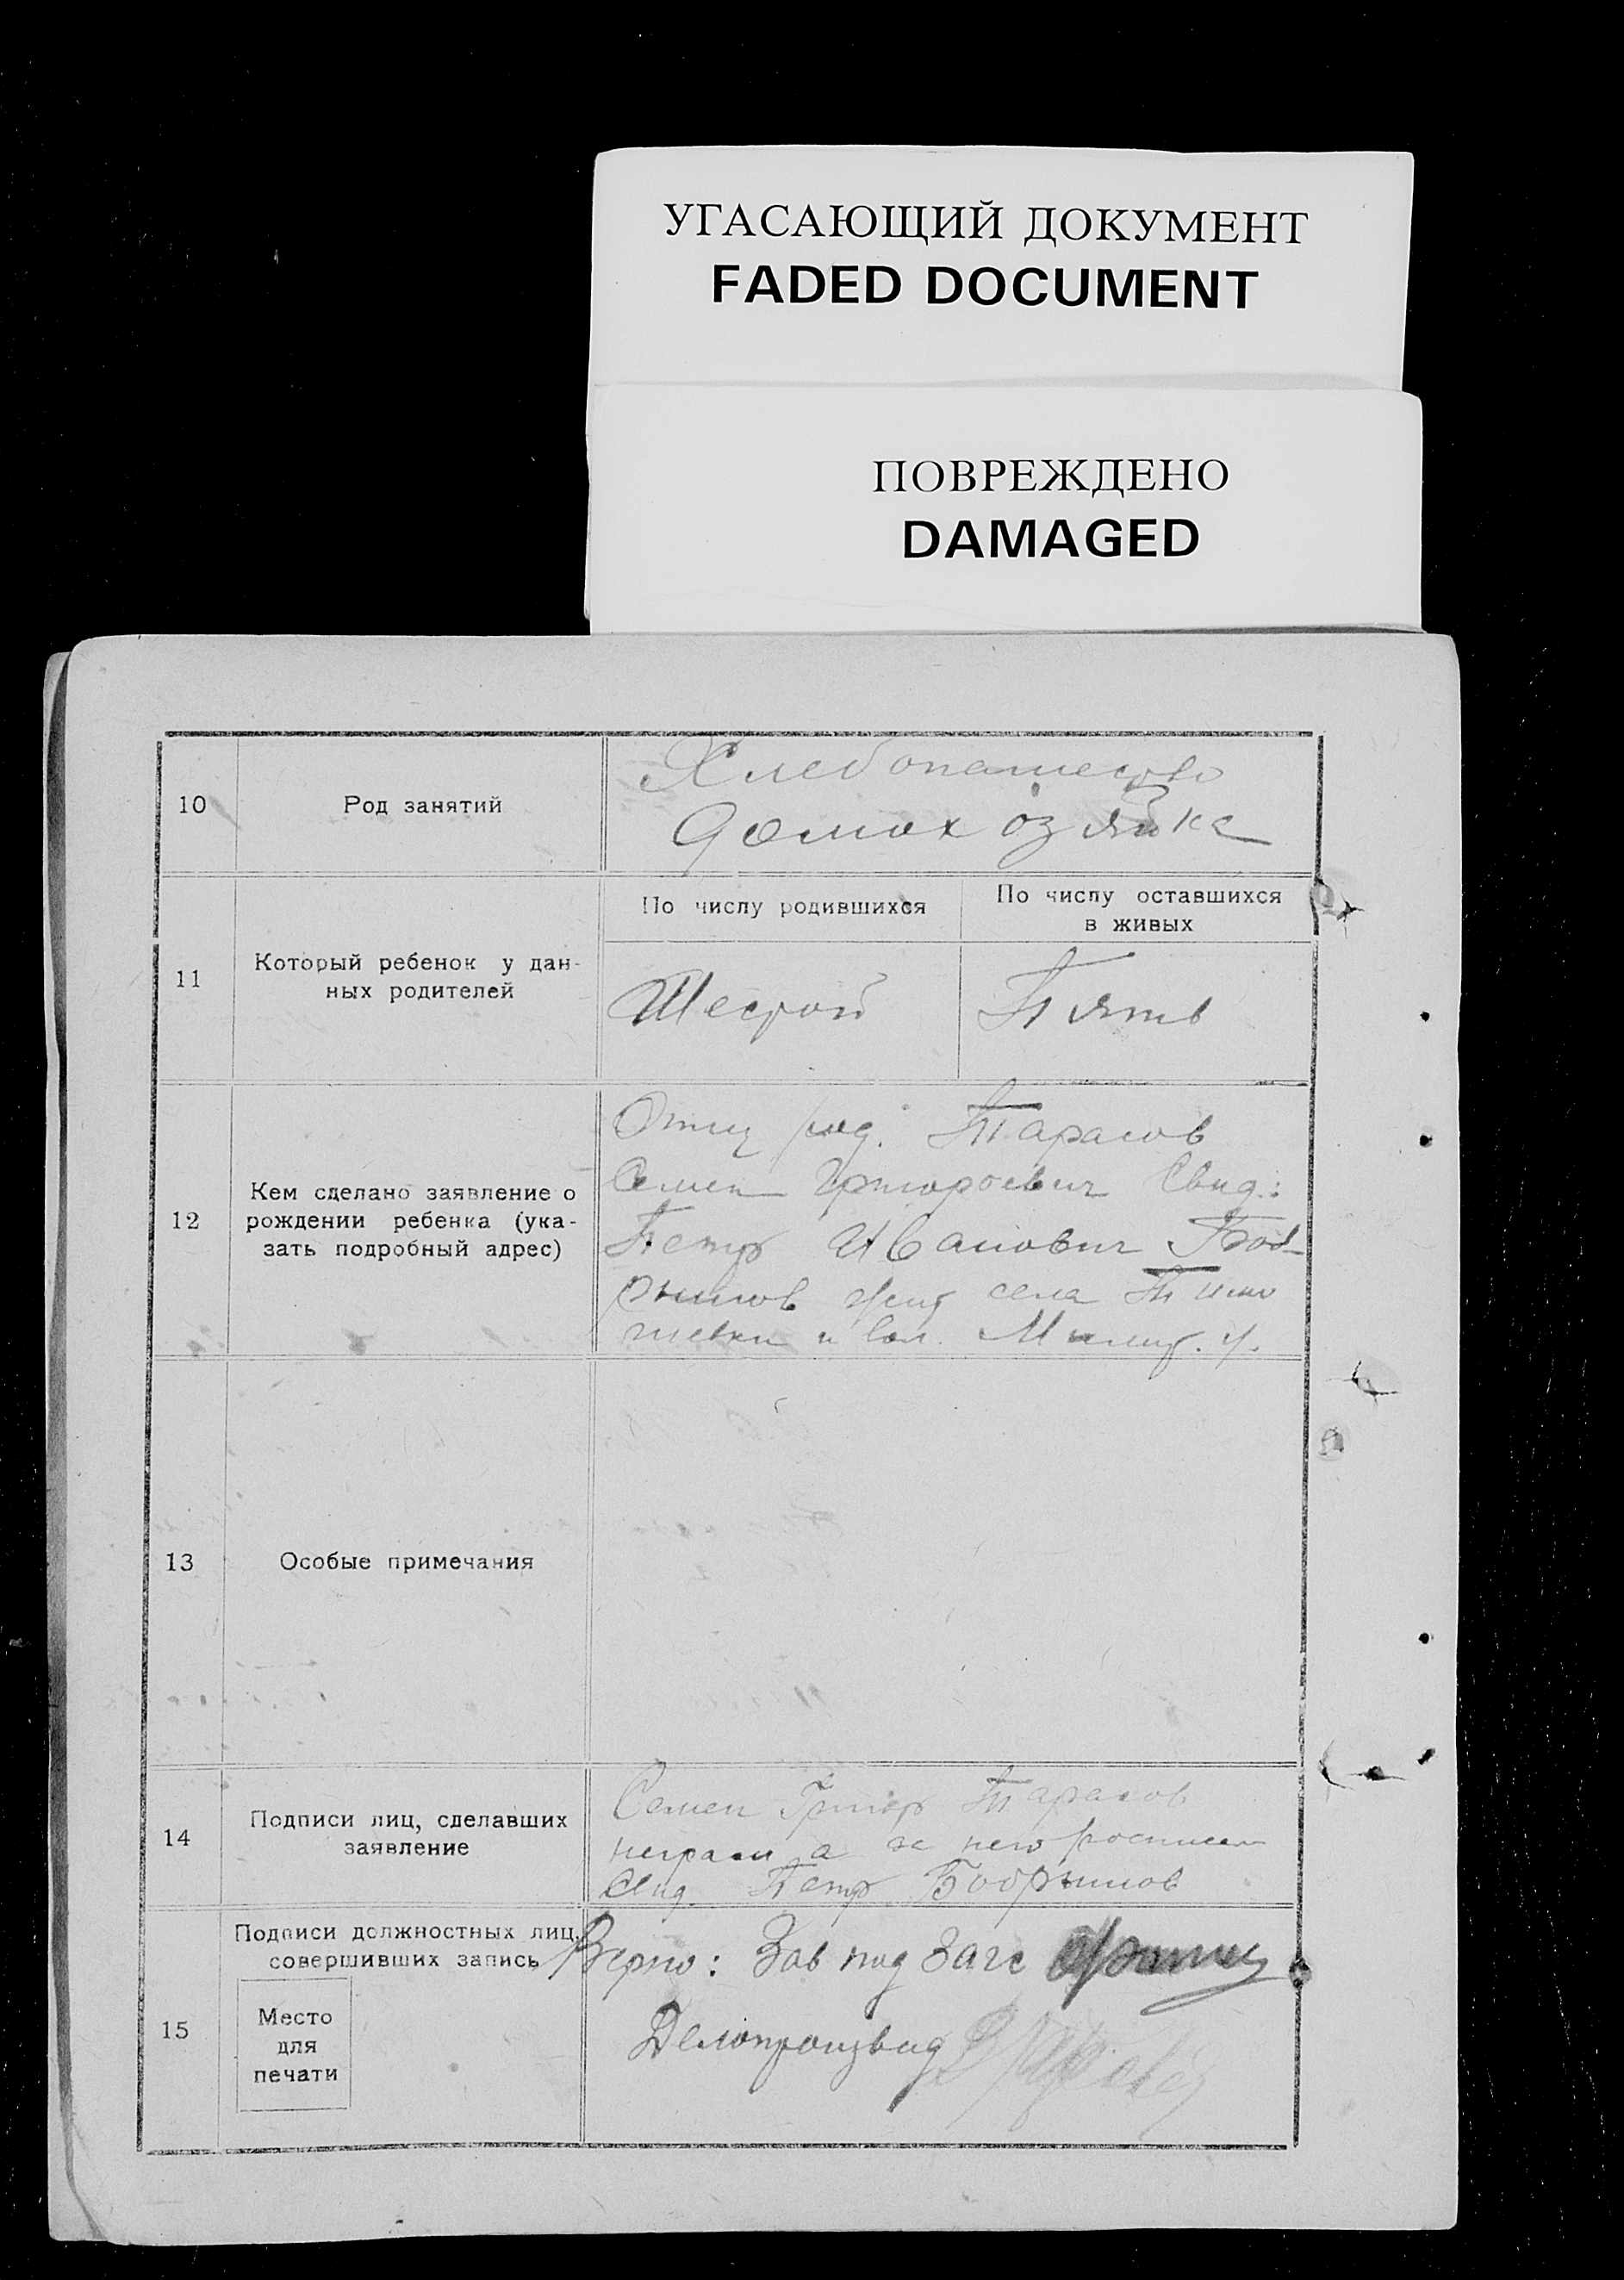 УГАСАЮЩИЙ ДОКУМЕНТ
FADED DOCUMENT
ПОВРЕЖДЕНО
DAMAGED
10
Род занятий
Хлебопашество
Домохозяйка
11
Который ребенок у дан-
ных родителей
По числу родившихся
По числу оставшихся
в живых
Шестой
Пять
12
Кем сделано заявление о
рождении ребенка (ука-
зать подробный адрес)
Отец Тарасов
Семен Григорьевич Свид.:
Петр Иванович
жит села
и вол.
13
Особые примечания
14
Подписи лиц, сделавших
заявление
Семен Григор Тарасов
неграм а за него
свид. Петр
15
Подписи должностных лиц,
совершивших запись
Верно: Зав под Загс
Место
для
печати
Делопроизвод